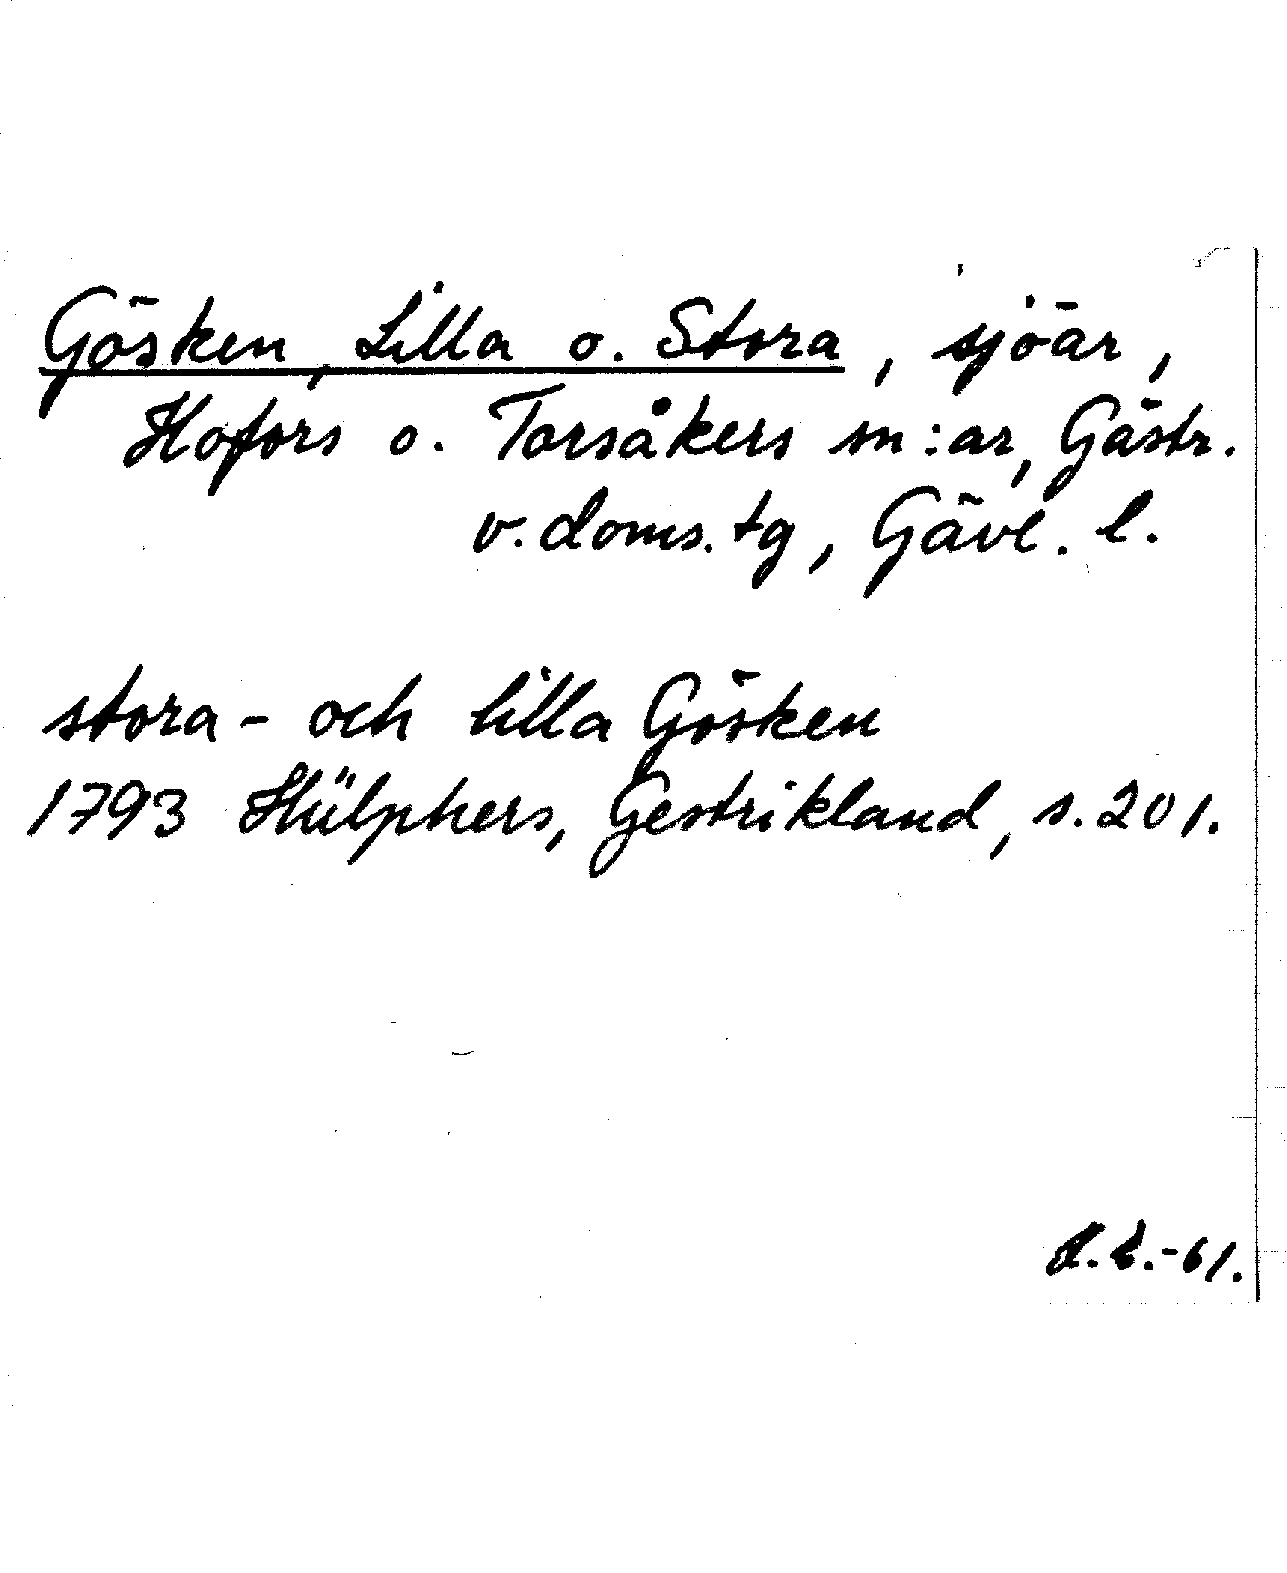 Gösken, Lilla o. Stora, sjöar,
Hofors o. Torsåkers sn:ar, Gästr.
v. doms. tg, Gävl. l.
stora- och lilla Gösken
1793 Hülphers, Gestrikland, s. 201.
-61.